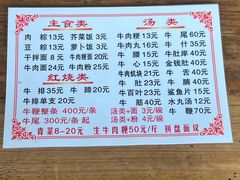 主食类
肉 粽13元 芥菜饭 3元
豆 粽13元 萝卜饭 3元
干拌面 8元 牛肉面20元
牛肉面24元 牛肉粉25元
红烧类
牛 排35元 牛 蹄20元
牛排单支20元
牛鞭整条 400元/条
牛尾 300元/条 起
汤类
牛肉粳13元 牛 尾60元
牛肉丸16元 牛 什35元
牛 腩15元 牛 腱35元
牛 心15元 金钱肚40元
牛肉焿块15元 牛 舌40元
牛 肚23元 牛 腩40元
牛百叶24元 牛 鞭35元
鲨 鱼35元 水丸汤12元
牛 筋40元 牛 鞭70元
汤类+面 3元/碗
汤类+粉 4元/碗
青菜8-20元 生牛肉粳50元/斤 拼盘面议